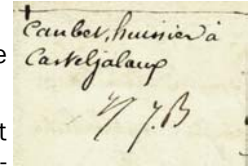 e
Caubet, huissier à
Casteljaloux
t
J.B
-